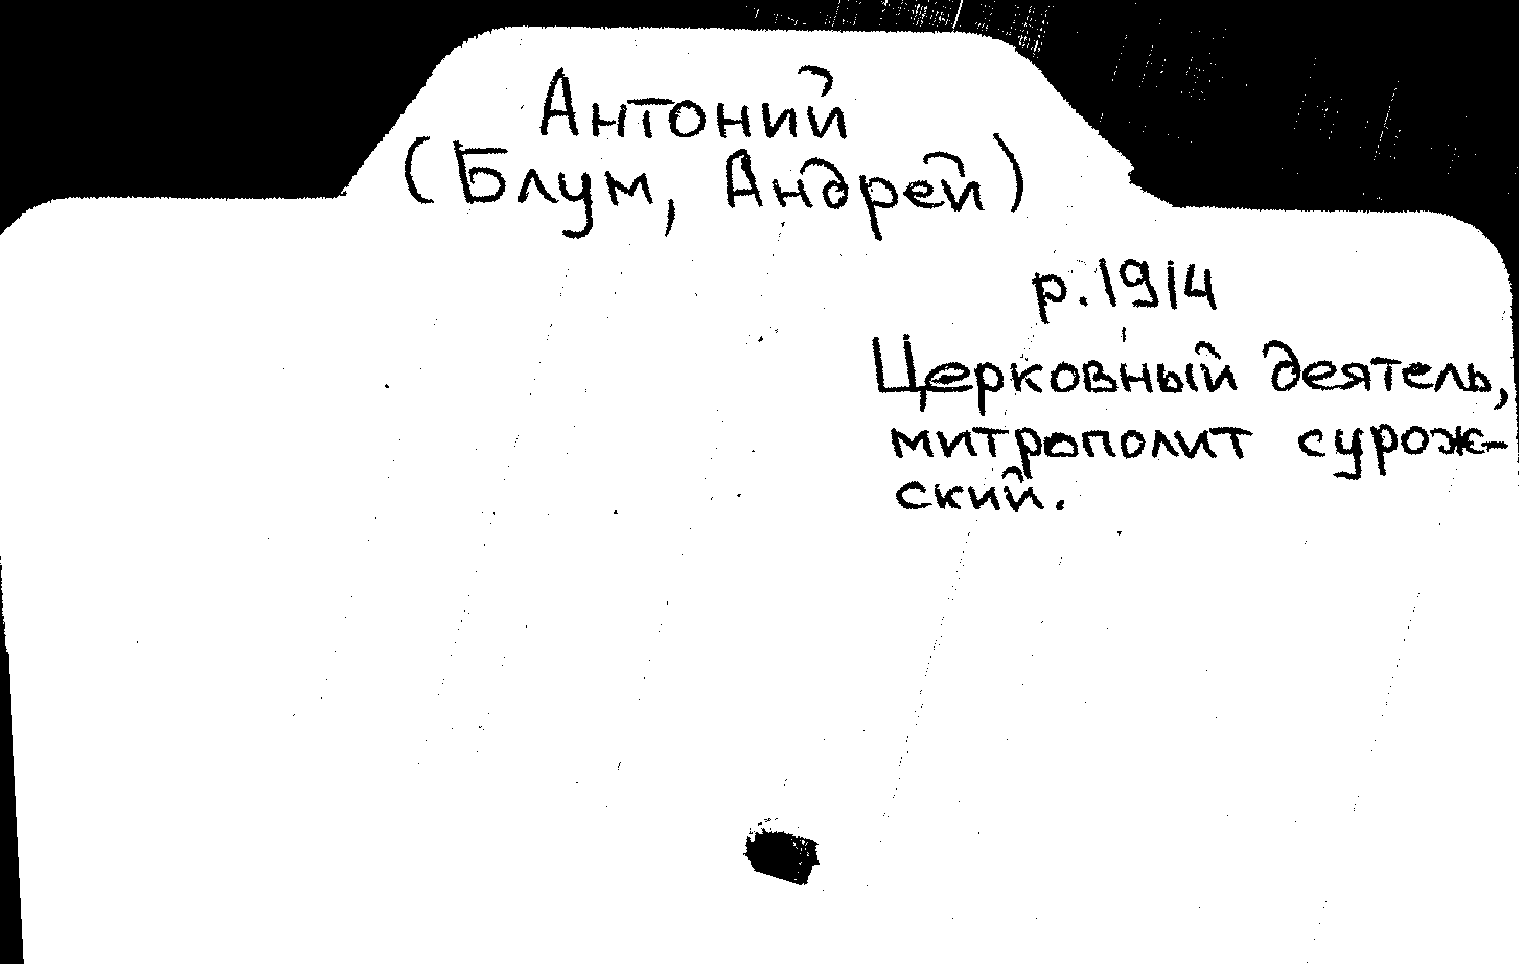 Антоний
(Блум, Андрей)
р. 1914
Церковный деятель,
митрополит сурож-
ский.